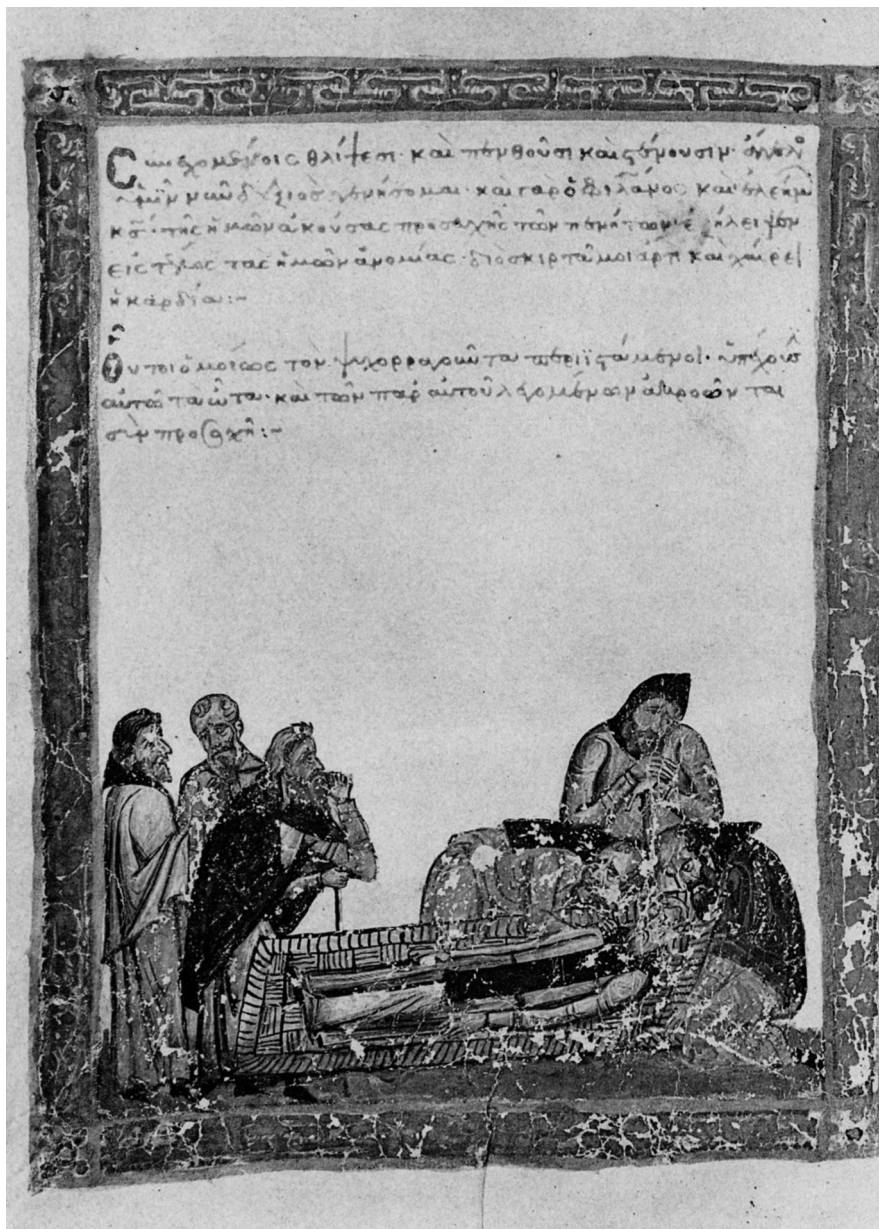 Συνεχομένοις θλίψεσι· καὶ πενθοῦσι καὶ στένουσιν·
ὑμῖν νῦν δεξιὸς γενήσομαι· καὶ γὰρ ὁ φιλᾶνος καὶ ἐλεήμω
κς̄· τῆς ἡμῶν ἀκούσας προσευχῆς τῶν πενήτων· ἐξήλειψεν
εἰς τέλος τὰς ἡμῶν ἀνομίας· διὸ σκιρτᾶ μοι ἄρτι καὶ χαίρει
ἡ καρδία:-
Οὗτοι ὁμοίως τὸν ψυχορραγοῦντα περιϊστάμενοι· ὑπέχουσ
αὐτῶ τὰ ὦτα· καὶ τῶν παρ αὐτοῦ λεγομένων ἀκροῶνται
σὺν προσοχῆ:-